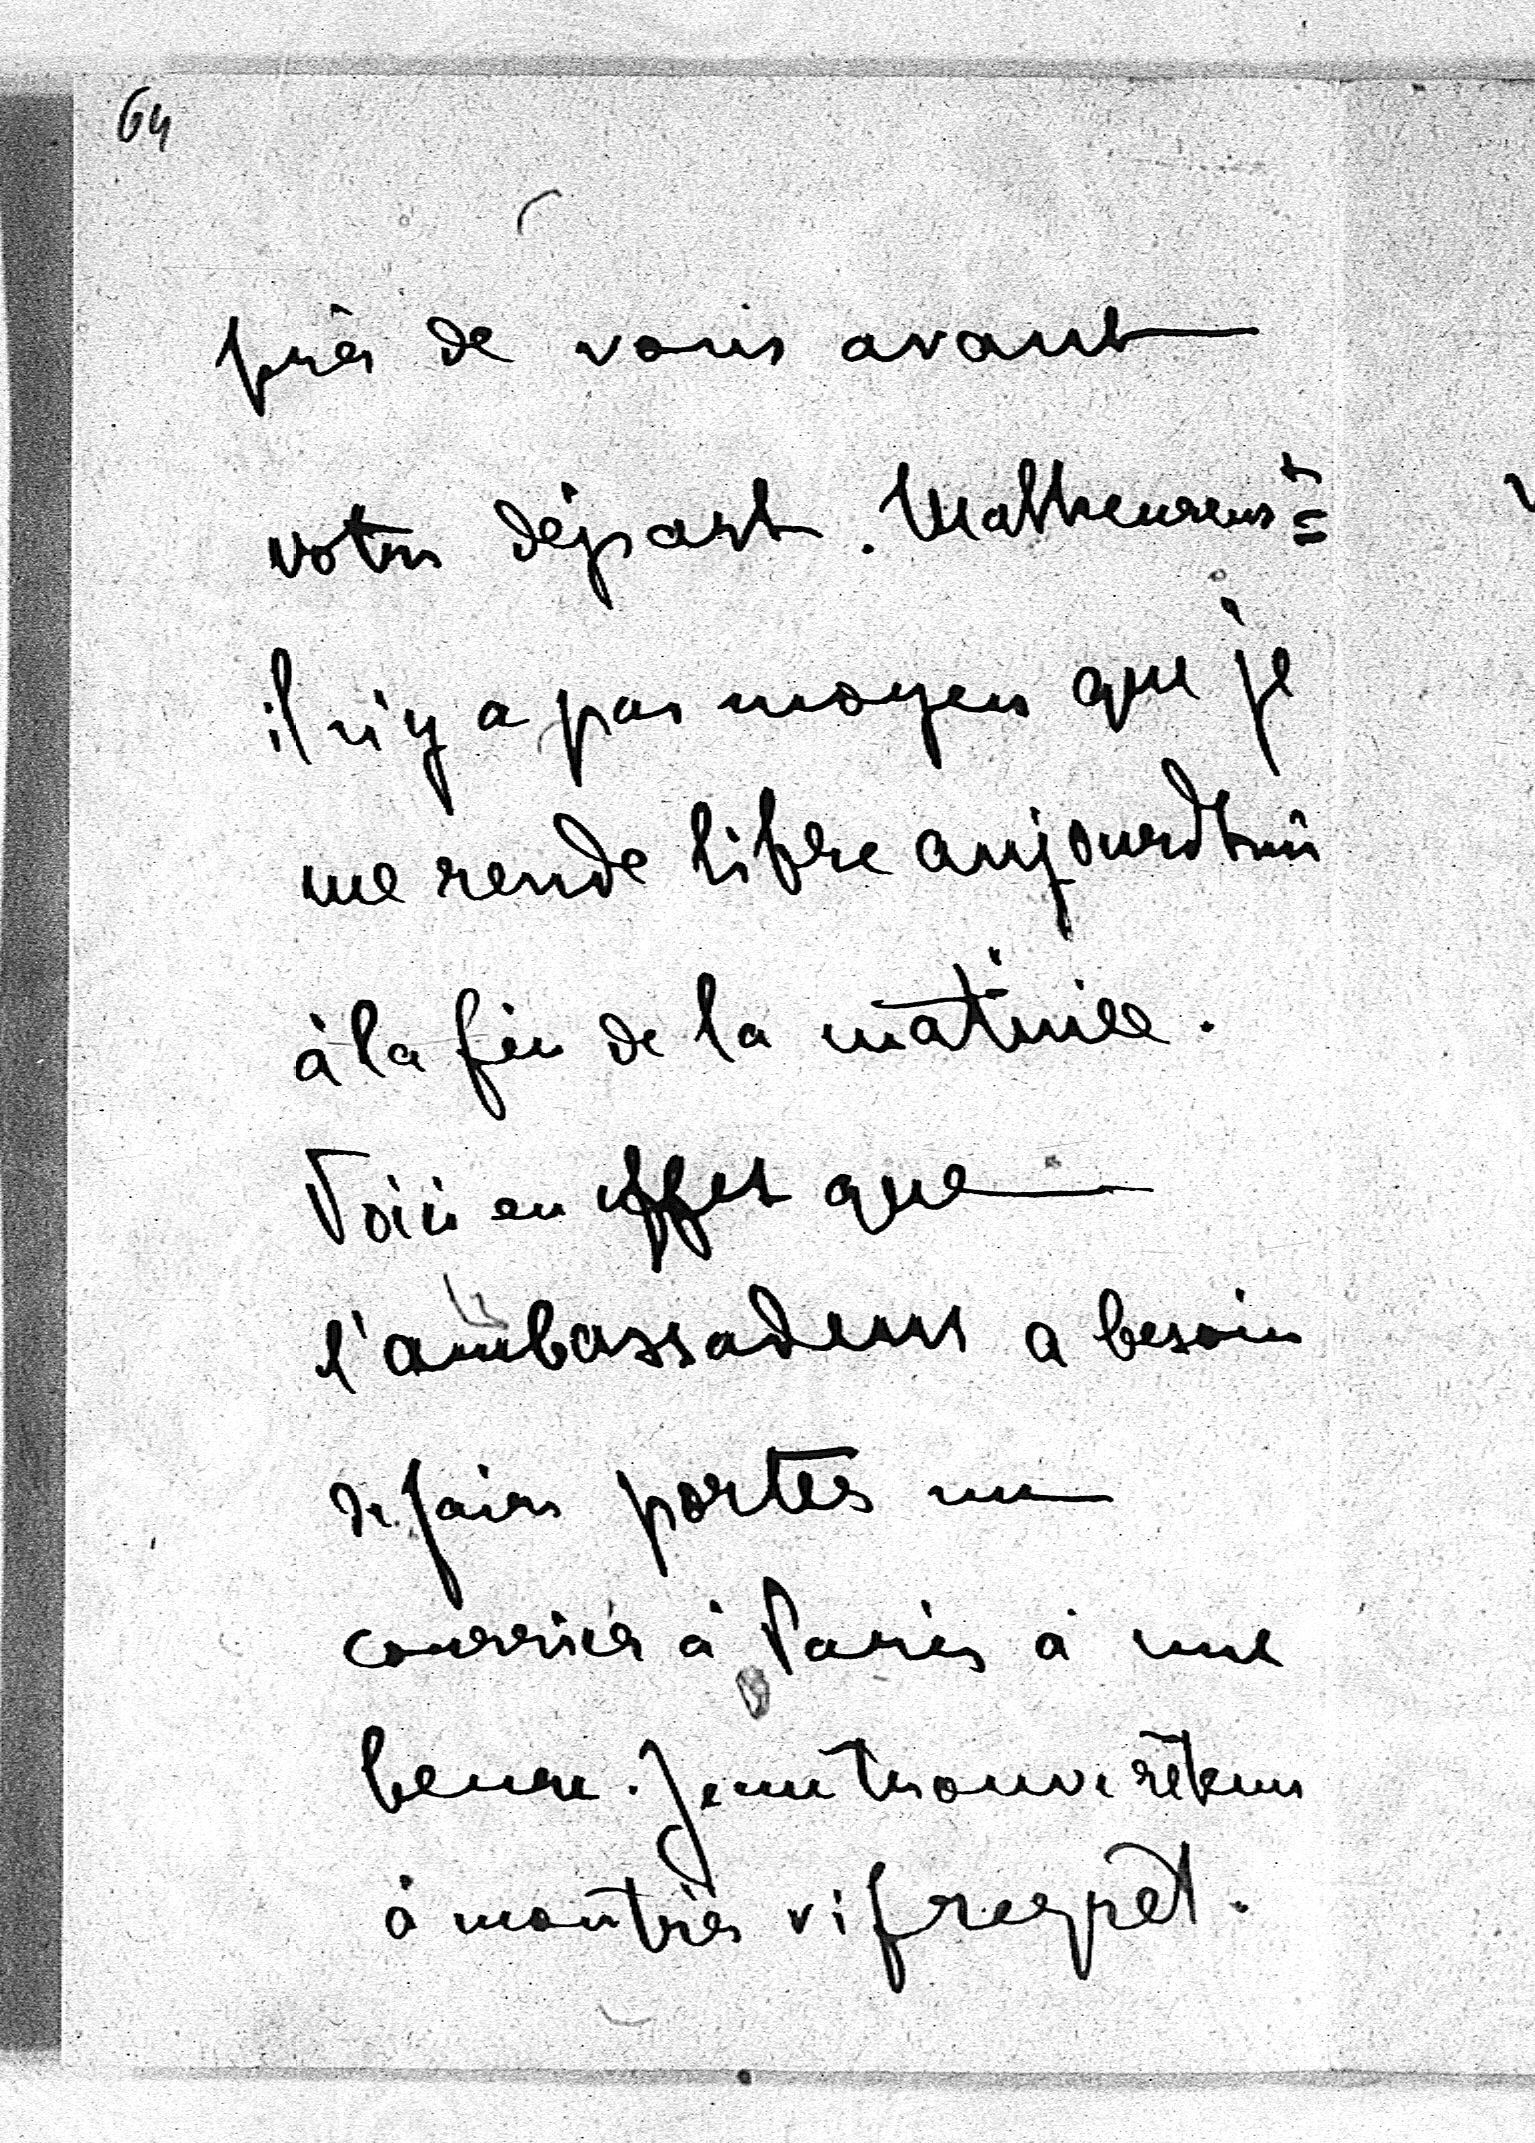 64
près de vous avant
votre départ. Malheureus^t=
il n'y a pas moyen que je
me rende libre aujourd'hui
à la fin de la matinée.
Voici en effet que
l'ambassadeur a besoin
de faire porter un
courrier à Paris à une
heure. Je me trouve retenu
à mon très vif regret.